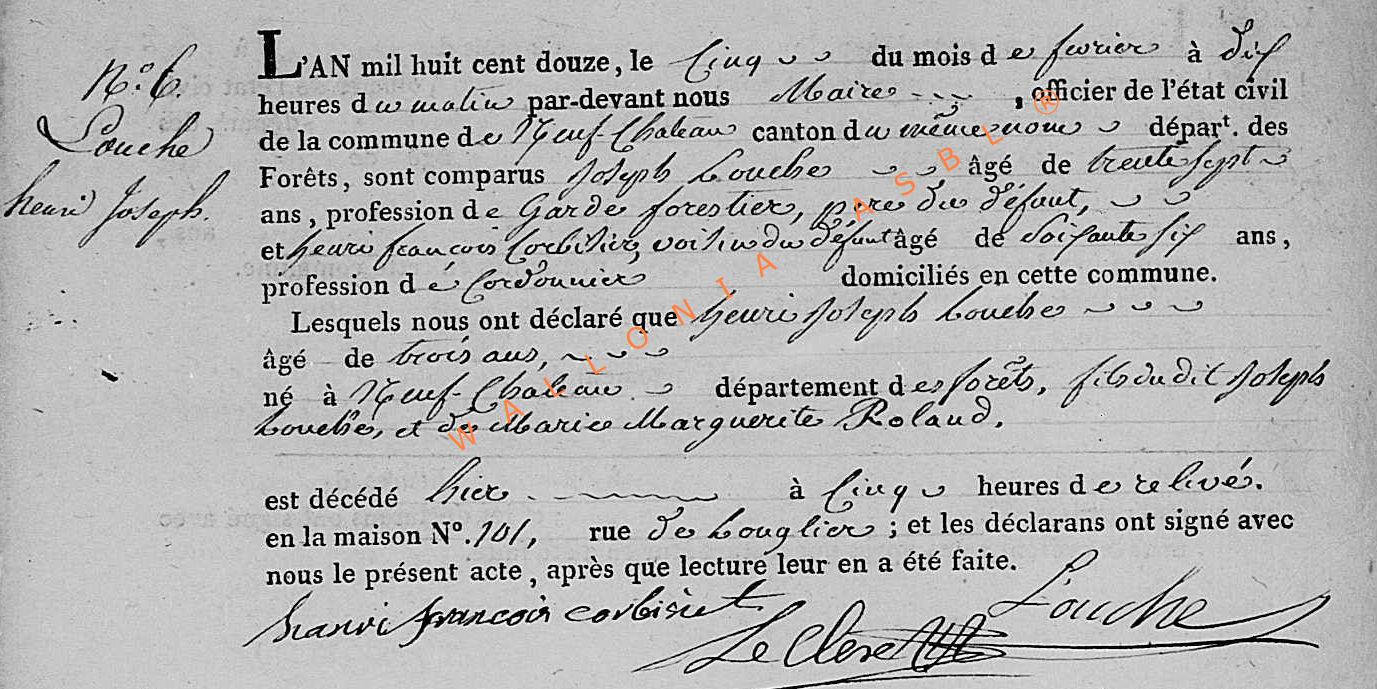 N.o 6.
Louche
henri Joseph.
L'AN mil huit cent douze, le Cinq du mois de fevrier à dix
heures du matin par-devant nous Maire, officier de l'état civil
de la commune de Neuf-Chateau canton du même nom départ. des
Forêts, sont comparus Joseph Louche âgé de trente sept
ans, profession de Garde forestier, pere du défunt,
et henri françois Corbisier, voisin du défunt âgé de soixante six ans,
profession dé Cordonnier domiciliés en cette commune.
Lesquels nous ont déclaré que henri Joseph Louche
âgé de trois ans,
né à Neuf-Chateau département des forêts, fils du dit Joseph
Louche, et de Marie Marguerite Roland.
est décédé hier à Cinq heures de relivé.
en la maison N°. 101, rue de Longlier; et les déclarans ont signé avec
nous le présent acte, après que lecture leur en a été faite.
francoir corbisiet
Louche
Le Clerc
WALLONIA ASBL ®